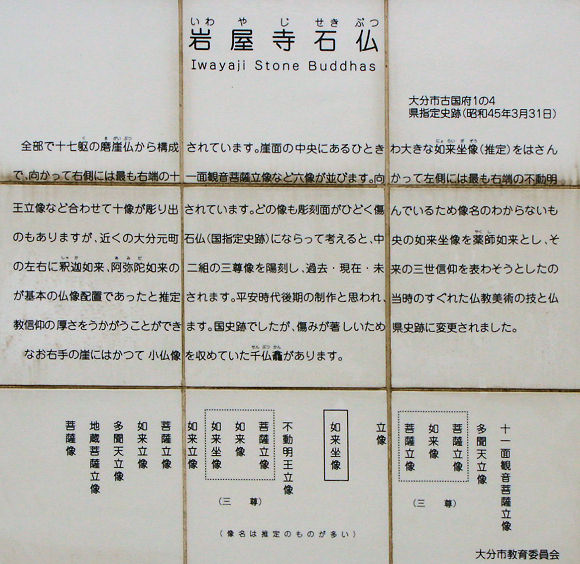 いわ や じ せき ぶつ
岩屋寺石仏
Iwayaji Stone Buddhas
大分市古国府1の4
県指定史跡(昭和45年3月31日)
く ま がい ぶつ にょ らい ざ ぞう
全部で十七躯の磨崖仏から構成されています。崖面の中央にあるひときわ大きな如来坐像(推定)をはさん
で、向かって右側には最も右端の十一面観音菩薩立像など六像が並びます。向かって左側には最も右端の不動明
王立像など合わせて十像が彫り出されています。どの像も彫刻面がひどく傷んでいるため像名のわからないも
やく し
のもありますが、近くの大分元町石仏(国指定史跡)にならって考えると、中央の如来坐像を薬師如来とし、そ
しゃ か あ み だ
の左右に釈迦如来、阿弥陀如来の二組の三尊像を陽刻し、過去・現在・未来の三世信仰を表わそうとしたの
が基本の仏像配置であったと推定されます。平安時代後期の制作と思われ、当時のすぐれた仏教美術の技と仏
教信仰の厚さをうかがうことができます。国史跡でしたが、傷みが著しいため県史跡に変更されました。
せん ぶつ かん
なお右手の崖にはかつて小仏像を収めていた千仏龕があります。
十一面観音菩薩立像
多聞天立像
菩薩立像
如来像
菩薩立像
(三尊)
立像
如来坐像
不動明王立像
菩薩立像
如来像
如来坐像
(三尊)
如来立像
菩薩立像
如来立像
多聞天立像
地蔵菩薩立像
菩薩像
(像名は推定のものが多い)
大分市教育委員会